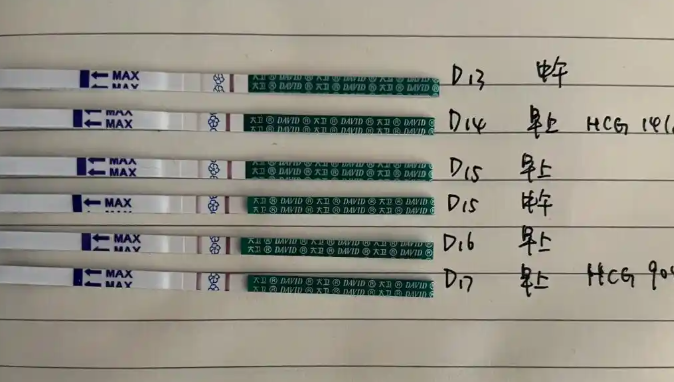 MAX
MAX
大卫 ® DAVID ® 大卫 ® DAVID ® 大卫 ® DAVID
D13 中午
MAX
MAX
大卫 ® DAVID ® 大卫 ® DAVID ® 大卫 ® DAVID
D14 早上 HCG 141
MAX
MAX
大卫 ® DAVID ® 大卫 ® DAVID ® 大卫 ® DAVID
D15 早上
MAX
大卫 ® DAVID ® 大卫 ® DAVID ® 大卫 ® DAVID
D15 中午
MAX
大卫 ® DAVID ® 大卫 ® DAVID ® 大卫 ® DAVID
D16 早上
MAX
大卫 ® DAVID ® 大卫 ® DAVID ® 大卫 ® DAVID
D17 早上 HCG